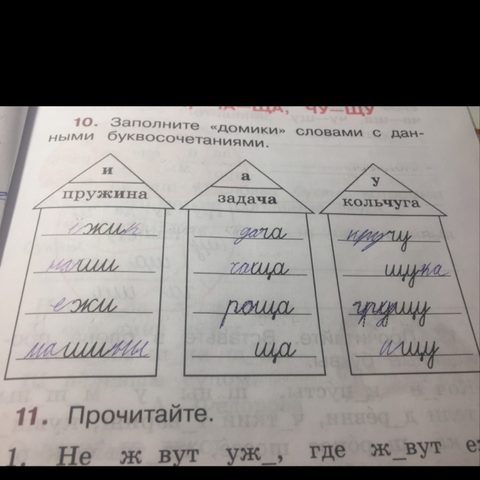 ЧА—ЩА, ЧУ—ЩУ
10. Заполните «домики» словами с дан-
ными буквосочетаниями.
и
пружина
ежик
наши
ежи
машины
а
задача
дача
чаща
роща
ща
у
кольчуга
кричу
щука
щу
ищу
11. Прочитайте.
1. Не ж_вут уж_, где ж_вут е